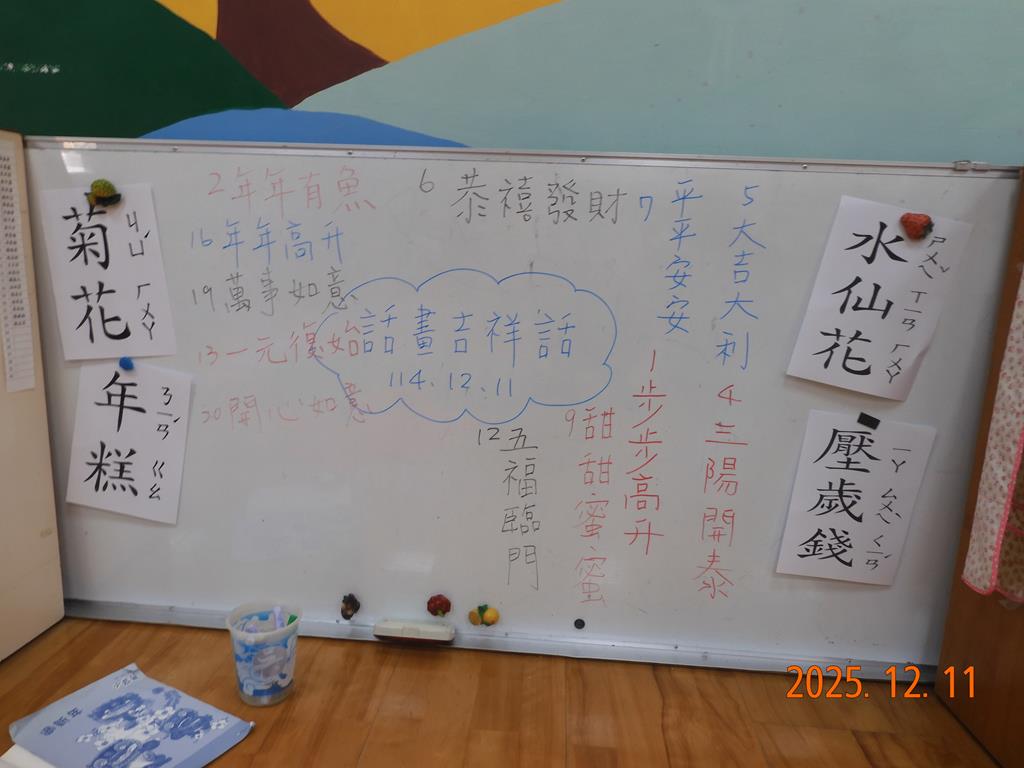 菊花
ㄐㄩˊ ㄏㄨㄚ
年糕
ㄋㄧㄢˊ ㄍㄠ
2年年有魚
16年年高升
19萬事如意
13一元復始
20開心如意
6 恭禧發財
話畫吉祥話
114.12.11
12五福臨門
9甜甜蜜蜜
7平平安安
1步步高升
5大吉大利
4三陽開泰
水仙花
ㄕㄨㄟˇ ㄒㄧㄢ ㄏㄨㄚ
壓歲錢
ㄧㄚ ㄙㄨㄟˋ ㄑㄧㄢˊ
2025. 12. 11